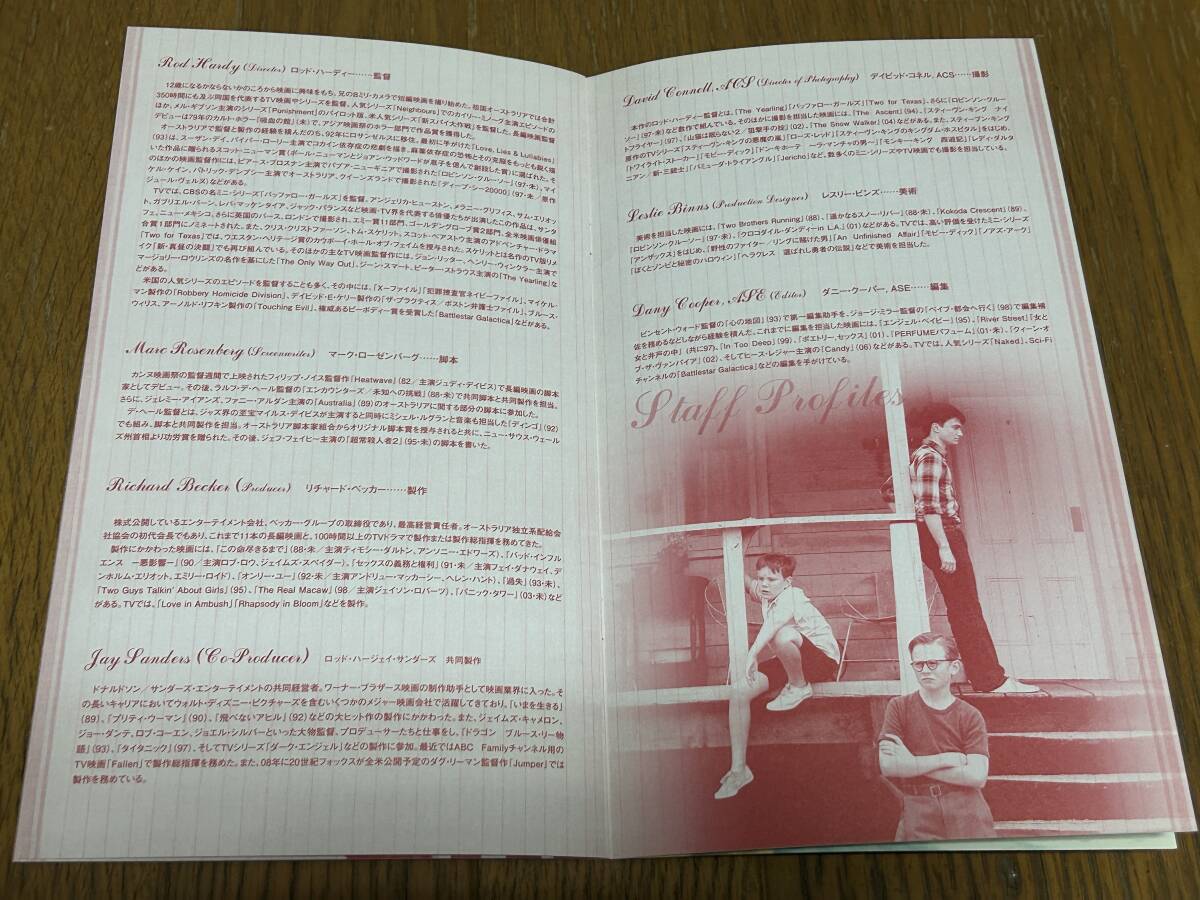 Rod Hardy (Director) ロッド・ハーディー……監督
12歳になるかならないかのころから映画に興味をもち、兄の8ミリ・カメラで短編映画を撮り始めた。祖国オーストラリアでは合計
350時間にも及ぶ同国を代表するTV映画やシリーズを監督。人気シリーズ「Neighbours」でのカイリー・ミノーグ主演エピソードの
ほか、メル・ギブソン主演のシリーズ「Punishment」のパイロット版、米人気シリーズ「新スパイ大作戦」を監督した。長編映画監督
デビューは79年のカルト・ホラー「吸血の館」(未)で、アジア映画祭のホラー部門で作品賞を獲得した。
オーストラリアで監督と製作の経験を積んだのち、92年にロサンゼルスに移住。最初に手がけた「Love, Lies & Lullabies」
(93)は、スーザン・デイ、パイパー・ローリー主演でコカイン依存症の悲劇を描き、麻薬依存症の恐怖とその克服をもっとも鋭く描
いた作品に贈られるスコット・ニューマン賞(ポール・ニューマンとジョアン・ウッドワードが息子を偲んで創設した賞)に選ばれた。そ
のほかの映画監督作には、ピアース・ブロスナン主演でパプア・ニューギニアで撮影された「ロビンソン・クルーソー」(97・未)、マイ
ケル・ケイン、パトリック・デンプシー主演でオーストラリア、クイーンズランドで撮影された「ディープ・シー20000」(97・未/原作
ジュール・ヴェルヌ)などがある。
TVでは、CBSの名ミニ・シリーズ「バッファロー・ガールズ」を監督。アンジェリカ・ヒューストン、メラニー・グリフィス、サム・エリオッ
ト、ガブリエル・バーン、レバ・マッケンタイア、ジャック・パランスなど映画・TV界を代表する俳優たちが出演したこの作品は、サンタ
フェ、ニュー・メキシコ、さらに英国のバース、ロンドンで撮影され、エミー賞11部門、ゴールデングローブ賞2部門、全米映画俳優組
合賞1部門にノミネートされた。また、クリス・クリストファーソン、トム・スケリット、スコット・ベアストウ主演のアドベンチャー・ドラマ
「Two for Texas」では、ウエスタン・ヘリテージ賞のカウボーイ・ホール・オブ・フェイムを授与された。スケリットとは名作のTV版リメ
イク「新・真昼の決闘」でも再び組んでいる。そのほかの主なTV映画監督作には、ジョン・リッター、ヘンリー・ウィンクラー主演で
マージョリー・ローリングスの名作を基にした「The Only Way Out」、ジーン・スマート、ピーター・ストラウス主演の「The Yearling」な
どがある。
米国の人気シリーズのエピソードを監督することも多く、その中には、「X-ファイル」「犯罪捜査官ネイビーファイル」、マイケル・
マン製作の「Robbery Homicide Division」、デイビッド・E・ケリー製作の「ザ・プラクティス/ボストン弁護士ファイル」、ブルース・
ウィリス、アーノルド・リフキン製作の「Touching Evil」、権威あるピーボディー賞を受賞した「Battlestar Galactica」などがある。
Marc Rosenberg (Screenwriter) マーク・ローゼンバーグ……脚本
カンヌ映画祭の監督週間で上映されたフィリップ・ノイス監督作「Heatwave」(82/主演ジュディ・デイビス)で長編映画の脚本
家としてデビュー。その後、ラルフ・デ・ヘール監督の「エンカウンターズ/未知への挑戦」(88・未)で共同脚本と共同製作を担当。
さらに、ジェレミー・アイアンズ、ファニー・アルダン主演の「Australia」(89)のオーストラリアに関する部分の脚本に参加した。
デ・ヘール監督とは、ジャズ界の至宝マイルス・デイビスが主演すると同時にミシェル・ルグランと音楽も担当した「ディンゴ」(92)
でも組み、脚本と共同製作を担当。オーストラリア脚本家組合からオリジナル脚本賞を授与されると共に、ニュー・サウス・ウェール
ズ州首相より功労賞を贈られた。その後、ジェフ・フェイヒー主演の「超常殺人者2」(95・未)の脚本を書いた。
Richard Becker (Producer) リチャード・ベッカー……製作
株式公開しているエンターテイメント会社、ベッカー・グループの取締役であり、最高経営責任者。オーストラリア独立系配給会
社協会の初代会長でもあり、これまで11本の長編映画と、100時間以上のTVドラマで製作または製作総指揮を務めてきた。
製作にかかわった映画には、「この命尽きるまで」(88・未/主演ティモシー・ダルトン、アンソニー・エドワーズ)、「バッド・インフル
エンス ー悪影響ー」(90/主演ロブ・ロウ、ジェイムズ・スペイダー)、「セックスの義務と権利」(91・未/主演フェイ・ダナウェイ、デ
ンホルム・エリオット、エミリー・ロイド)、「オンリー・ユー」(92・未/主演アンドリュー・マッカーシー、ヘレン・ハント)、「過失」(93・未)、
「Two Guys Talkin' About Girls」(95)、「The Real Macaw」(98/主演ジェイソン・ロバーツ)、「パニック・タワー」(03・未)など
がある。TVでは、「Love in Ambush」「Rhapsody in Bloom」などを製作。
Jay Sanders (Co-Producer) ロッド・ハージェイ・サンダーズ 共同製作
ドナルドソン/サンダーズ・エンターテイメントの共同経営者。ワーナー・ブラザース映画の制作助手として映画業界に入った。そ
の長いキャリアにおいてウォルト・ディズニー・ピクチャーズを含むいくつかのメジャー映画会社で活躍してきており、「いまを生きる」
(89)、「プリティ・ウーマン」(90)、「飛べないアヒル」(92)などの大ヒット作の製作にかかわった。また、ジェイムズ・キャメロン、
ジョー・ダンテ、ロブ・コーエン、ジョエル・シルバーといった大物監督、プロデューサーたちと仕事をし、「ドラゴン ブルース・リー物
語」(93)、「タイタニック」(97)、そしてTVシリーズ「ダーク・エンジェル」などの製作に参加。最近ではABC Familyチャンネル用の
TV映画「Fallen」で製作総指揮を務めた。また、08年に20世紀フォックスが全米公開予定のダグ・リーマン監督作「Jumper」では
製作を務めている。
David Connell, ACS (Director of Photography) デイビッド・コネル, ACS……撮影
本作のロッド・ハーディー監督とは、「The Yearling」「バッファロー・ガールズ」「Two for Texas」、さらに「ロビンソン・クルー
ソー」(97・未)など数作で組んでいる。そのほかに撮影を担当した映画には、「The Ascent」(94)、「スティーヴン・キング ナイ
トフライヤー」(97)、「山猫は眠らない2/狙撃手の掟」(02)、「The Snow Walker」(04)などがある。また、スティーブン・キング
原作のTVシリーズ「スティーヴン・キングの悪魔の嵐」「ローズ・レッド」「スティーヴン・キングのキングダム・ホスピタル」をはじめ、
「トワイライト・ストーカー」「モビー・ディック」「ドン・キホーテ ーラ・マンチャの男ー」「モンキー・キング 西遊記」「レディ・ダルタ
ニアン/新・三銃士」「バミューダ・トライアングル」「Jericho」など、数多くのミニ・シリーズやTV映画でも撮影を担当している。
Leslie Binns (Production Designer) レスリー・ビンズ……美術
美術を担当した映画には、「Two Brothers Running」(88)、「遥かなるスノー・リバー」(88・未)、「Kokoda Crescent」(89)、
「ロビンソン・クルーソー」(97・未)、「クロコダイル・ダンディー in L.A.」(01)などがある。TVでは、高い評価を受けたミニ・シリーズ
「アンザックス」をはじめ、「野性のファイター/リングに賭けた男」「An Unfinished Affair」「モビー・ディック」「ノアズ・アーク」
「ぼくとゾンビと秘密のハロウィン」「ヘラクレス 選ばれし勇者の伝説」などで美術を担当した。
Dany Cooper, ASE (Editor) ダニー・クーパー, ASE……編集
ビンセント・ウォード監督の「心の地図」(93)で第一編集助手を、ジョージ・ミラー監督の「ベイブ・都会へ行く」(98)で編集補
佐を務めるなどしながら経験を積んだ。これまでに編集を担当した映画には、「エンジェル・ベイビー」(95)、「River Street」「女と
女と井戸の中」(共に97)、「In Too Deep」(99)、「ポエトリー、セックス」(01)、「PERFUMEパフューム」(01・未)、「クィーン・オ
ブ・ザ・ヴァンパイア」(02)、そしてヒース・レジャー主演の「Candy」(06)などがある。TVでは、人気シリーズ「Naked」、Sci-Fi
チャンネルの「Battlestar Galactica」などの編集を手がけている。
Staff Profiles